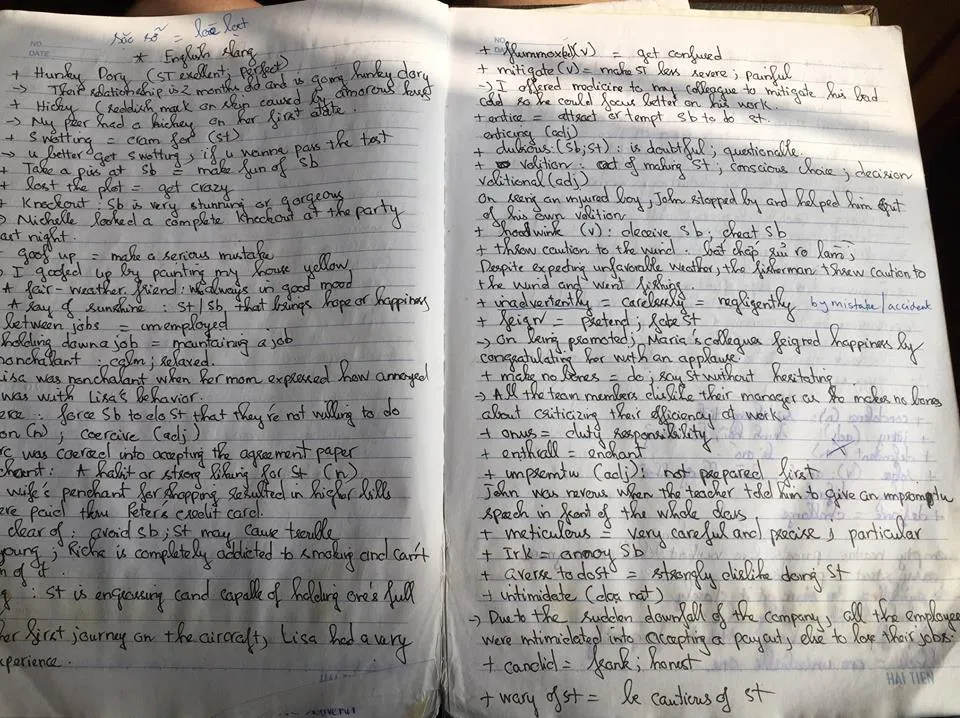 sặc sỡ = loè loẹt
NO.
DATE
* English slang
+ Hunky Dory (ST excellent; perfect)
→ Their relationship is 2 months old and is going hunky dory
+ Hickey (reddish mark on skin caused by amorous kiss
→ My peer had a hickey on her first date.
+ Swotting = cram for (st)
→ u better get swotting, if u wanna pass the test
+ Take a piss at sb = make fun of sb
+ lost the plot = get crazy
+ Knockout: Sb is very stunning or gorgeous
→ Nichelle looked a complete Knockout at the party
ast night.
goof up = make a serious mistake
→ I goofed up by painting my house yellow
A fair-weather friend: is always in good mood
A ray of sunshine: st/sb that brings hope or happiness
between jobs = unemployed
holding down a job = maintaining a job
nonchalant: calm; relaxed.
Lisa was nonchalant when her mom expressed how annoyed
was with Lisa's behavior.
erce: force Sb to do St that they're not willing to do
on (n); coercive (adj)
rc was coerced into accepting the agreement paper
chent: A habit or strong liking for St (n)
wife's penchant for shopping resulted in higher bills
ere paid thru Peter's credit card.
clear of: avoid sb; ST may cause trouble
young; Richa is completely addicted to smoking and can't
n of it.
g: St is engrossing and capable of holding one's full
her first journey on the aircraft, Lisa had a very
xperience.
NO.
DATE
+ flummox(ed)(v) = get confused
+ mitigate (v) = make st less severe; painful
→ I offered medicine to my collegue to mitigate his bad
cold so he could focus better on his work.
+ entice = attract or tempt Sb to do st.
enticing (adj)
+ dubious: (Sb; St): is doubtful; questionable.
+ volition: act of making St; conscious choice; decision
volitional (adj)
On seeing an injured boy, John stopped by and helped him out
of his own volition
+ hoodwink (v): deceive Sb; cheat Sb
+ throw caution to the wind: bất chấp rủi ro làm;
Despite expecting unfavorable weather, the fisherman threw caution to
the wind and went fishing.
+ inadvertently = carelessly = negligently by mistake/accident
+ feign = pretend; fake ST
→ On being promoted, Maria's collegues feigned happiness by
congratulating her with an applause.
+ make no bones = do; say St without hesitating
→ All the team members dislike their manager as he makes no bones
about criticizing their efficiency at work.
+ onus = duty responsibility
+ enthrall = enchant
+ impromtu (adj): not prepared first
John was nervous when the teacher told him to give an impromptu
speech in front of the whole class
+ meticulous = very careful and precise, particular
+ Irk = annoy Sb
+ averse to do st = strongly dislike doing St
+ intimidate (doạ nạt)
→ Due to the sudden downfall of the company, all the employee
were intimidated into accepting a payout, else to lose their jobs.
+ candid = frank; honest
+ wary of st = be cautious of st
HAI TIEN